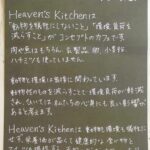 Heaven's Kitchenは
「動物を犠牲にしないこと」「環境負荷を
減らすこと」がコンセプトのカフェです。
肉や魚はもちろん、乳製品、卵、小麦粉
ハチミツも使っていません。
動物と環境は密接に関わっています。
動物性のものを減らすことで環境負荷が軽減
され、ひいては私たちの心身にも良い影響が
あると考えます。
Heaven's Kitchenは 動物も環境も犠牲に
せず、栄養価が高くて健康的な食べ物と